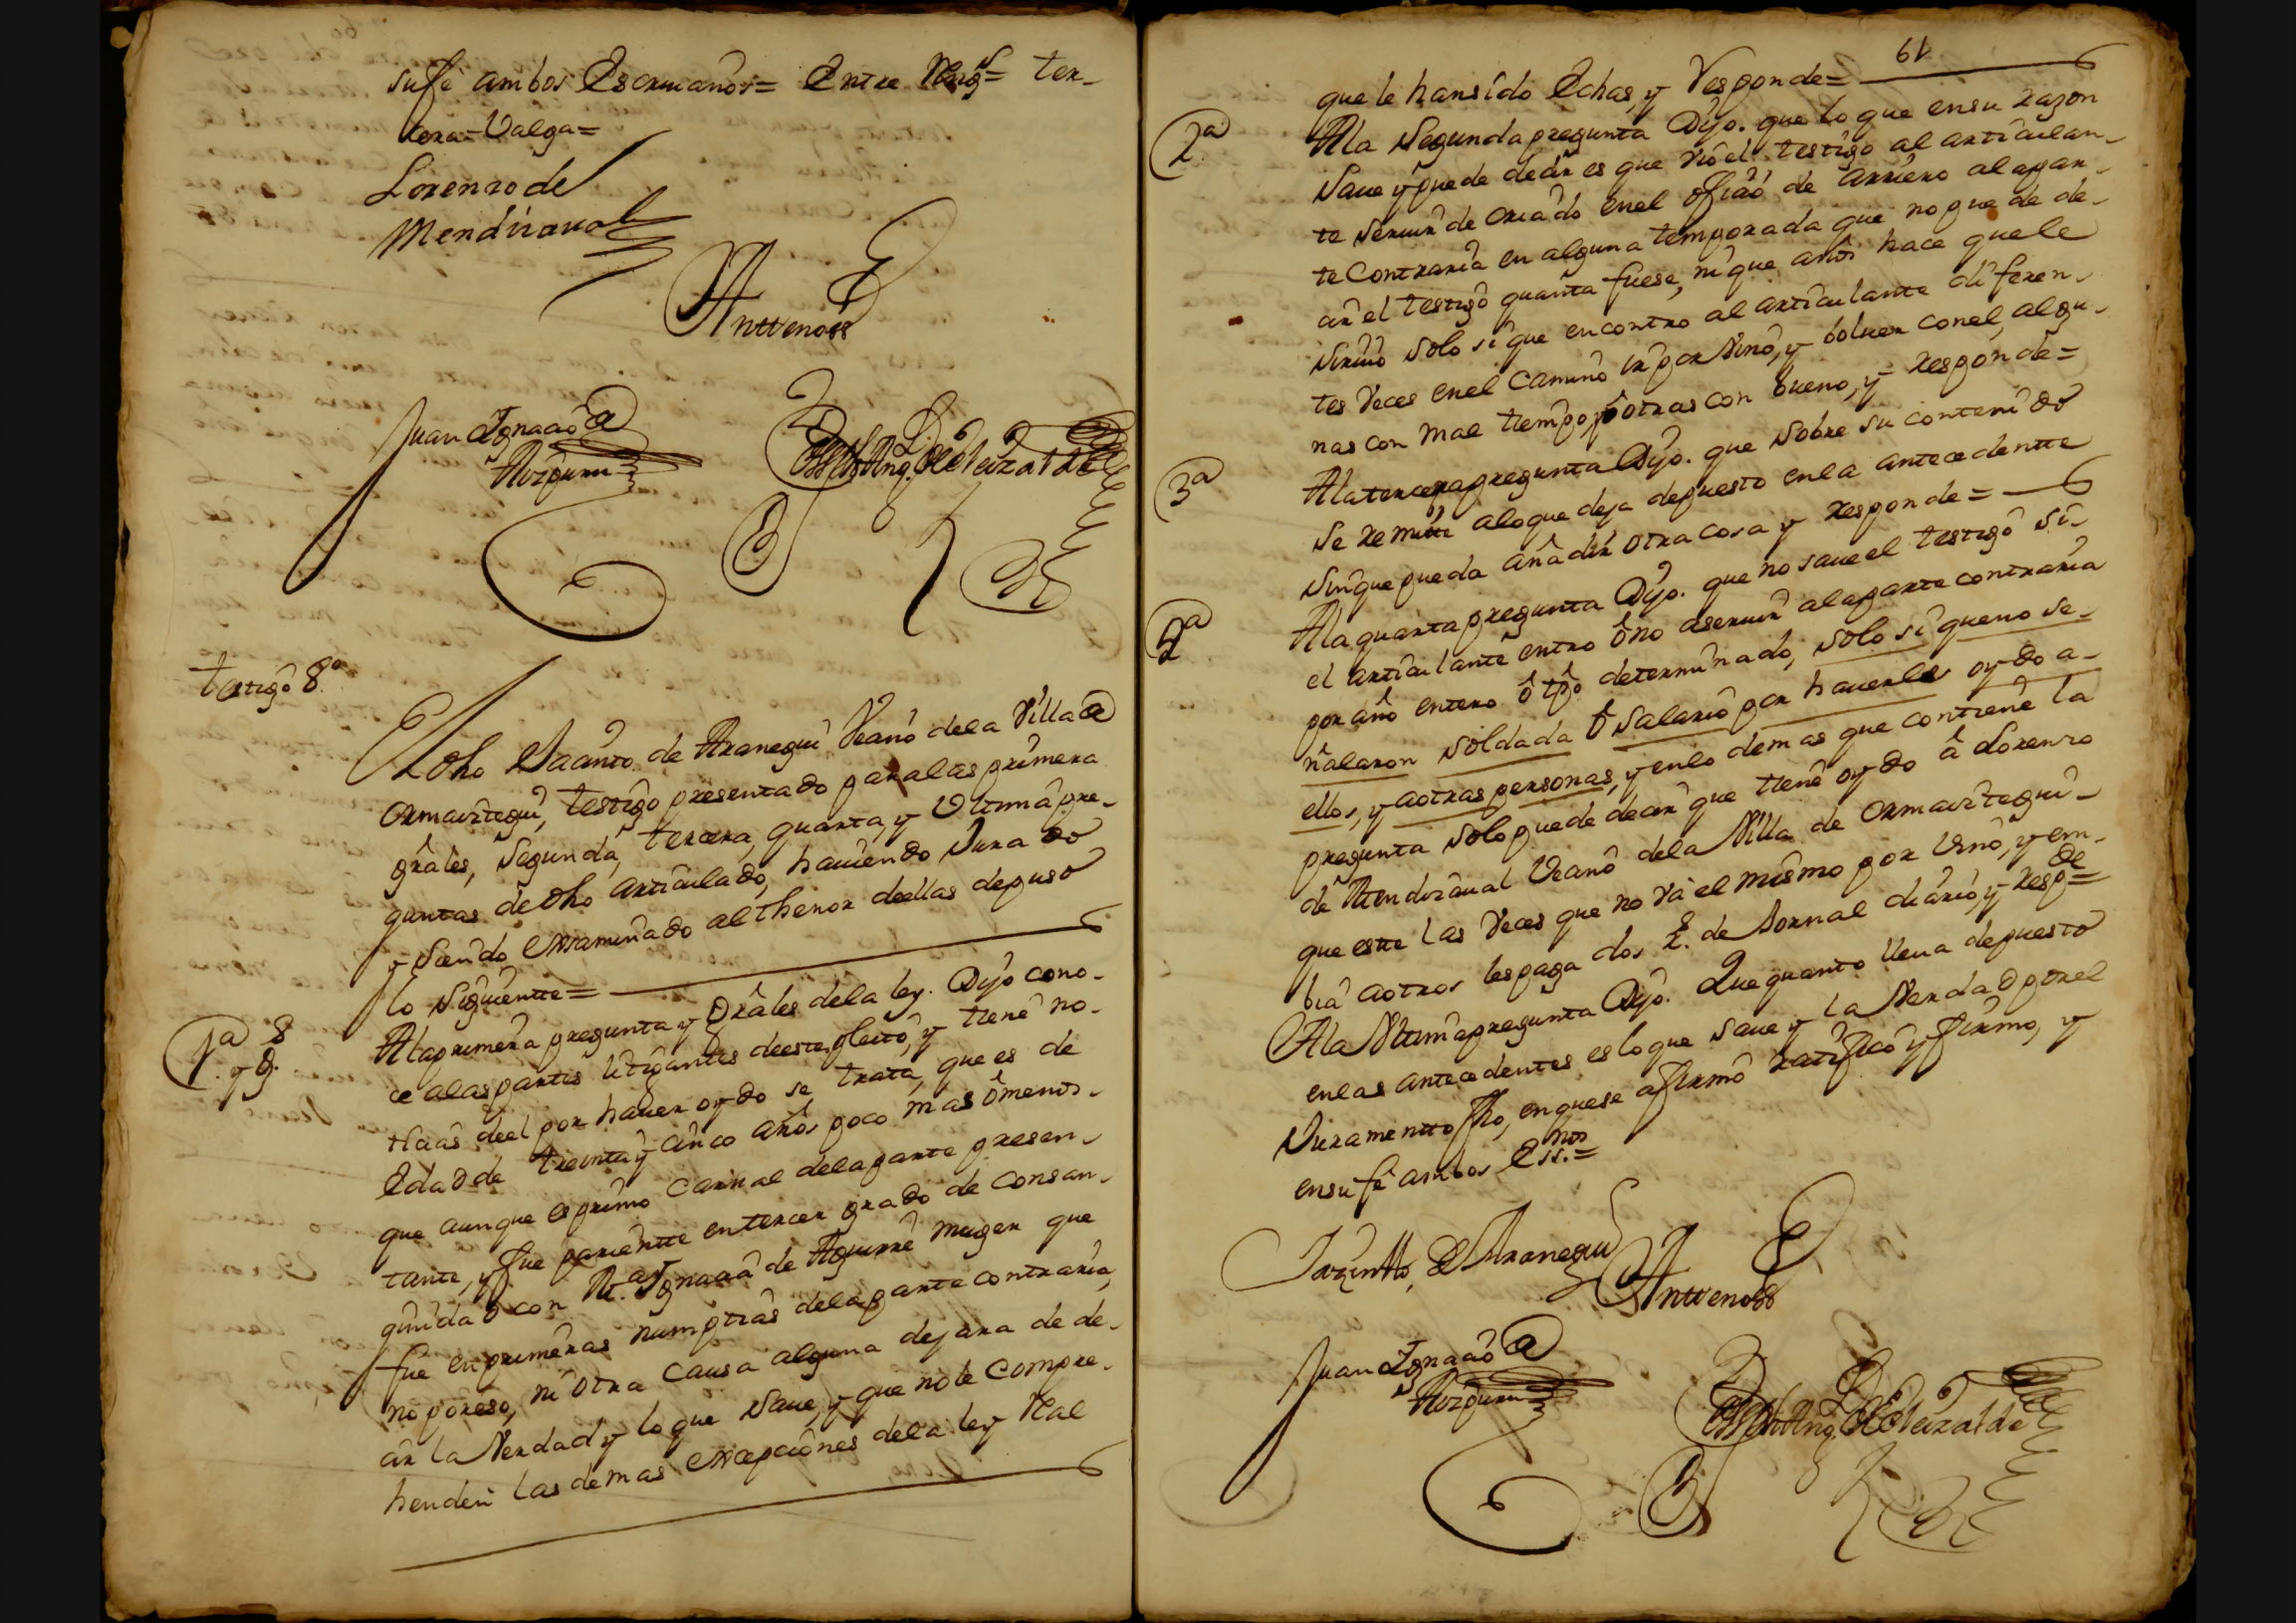 su fe ambos Escriuanos= Entre Reng.s= ter-
cera= Valga=
Lorenzo de
Mendizaual
Antte nos
Juan Ignacio de
Aozpuru
testigo 8.º
El dho Jacinto de Aranegui Vecino de la Villa de
Ormaiztegui, testigo presentado para las primera
grâles, segunda, tercera, quarta, y Vltima pre-
guntas de dho articulado, hauiendo Jurado
y siendo exsaminado al thenor de ellas depuso
lo siguiente=
1.ª
y g.s
A la primera pregunta y grâles de la ley. Dijo cono-
ce a las partes litigantes de este pleito, y tiene no-
ticias de el por hauer oydo se trata, que es de
edad de treinta y cinco años poco mas ô menos-
que aunque es primo carnal de la parte presen-
tante, y fue pariente en tercer grado de consan-
guinidad con M.ª Ignacia de Aguirre muger que
fue en primeras numptias de la parte contraria,
no por eso, ni otra causa alguna dejara de de-
cir la Verdad y lo que saue, y que no le compre-
henden las demas excepciones de la ley Real
61
que le han sido echas, y Responde=
2.ª
A la segunda pregunta Dijo. que lo que en su razon
saue y puede decir es que vio el testigo al articulan-
te seruir de criado en el oficio de arriero a la par-
te Contraria en alguna temporada que no puede de-
cir el testigo quanta fuese, ni que años hace que le
siruio solo si que encontro al articulante diferen-
tes Veces en el camino ir por Vino, y boluer con el, algu-
nas con mal tiempo, y otras con bueno, y responde=
3.ª
A la tercera pregunta Dijo. que sobre su contenido
se remitte a lo que deja depuesto en la antecedentte
sin que pueda añadir otra cosa y responde=
4.ª
A la quarta pregunta Dijo. que no saue el testigo si-
el articulante entro ô no a seruir a la parte contraria
por año entero ô tpô determinado, solo si que no se-
ñalaron soldada ô salario por hauerles oydo a-
ellos, y a otras personas, y en lo demas que contiene la
pregunta solo puede decir que tiene oydo â Lorenzo
de Mendizaual Vecino de la Villa de Ormaiztegui-
que este las Veces que no vâ el mismo por Vino, y em-
bia a otros les paga dos r.s de Jornal diario, y resp.de=
A la Vltima pregunta Dijo. Que quanto lleua depuesto
en las antecedentes es lo que saue y la Verdad por el
Juramentto fho, en que se afirmô ratificô y firmo, y
en su fe ambos Ess.nos=
Jazintto, de Aranegui
Antte nos
Juan Ignacio de
Aozpuru